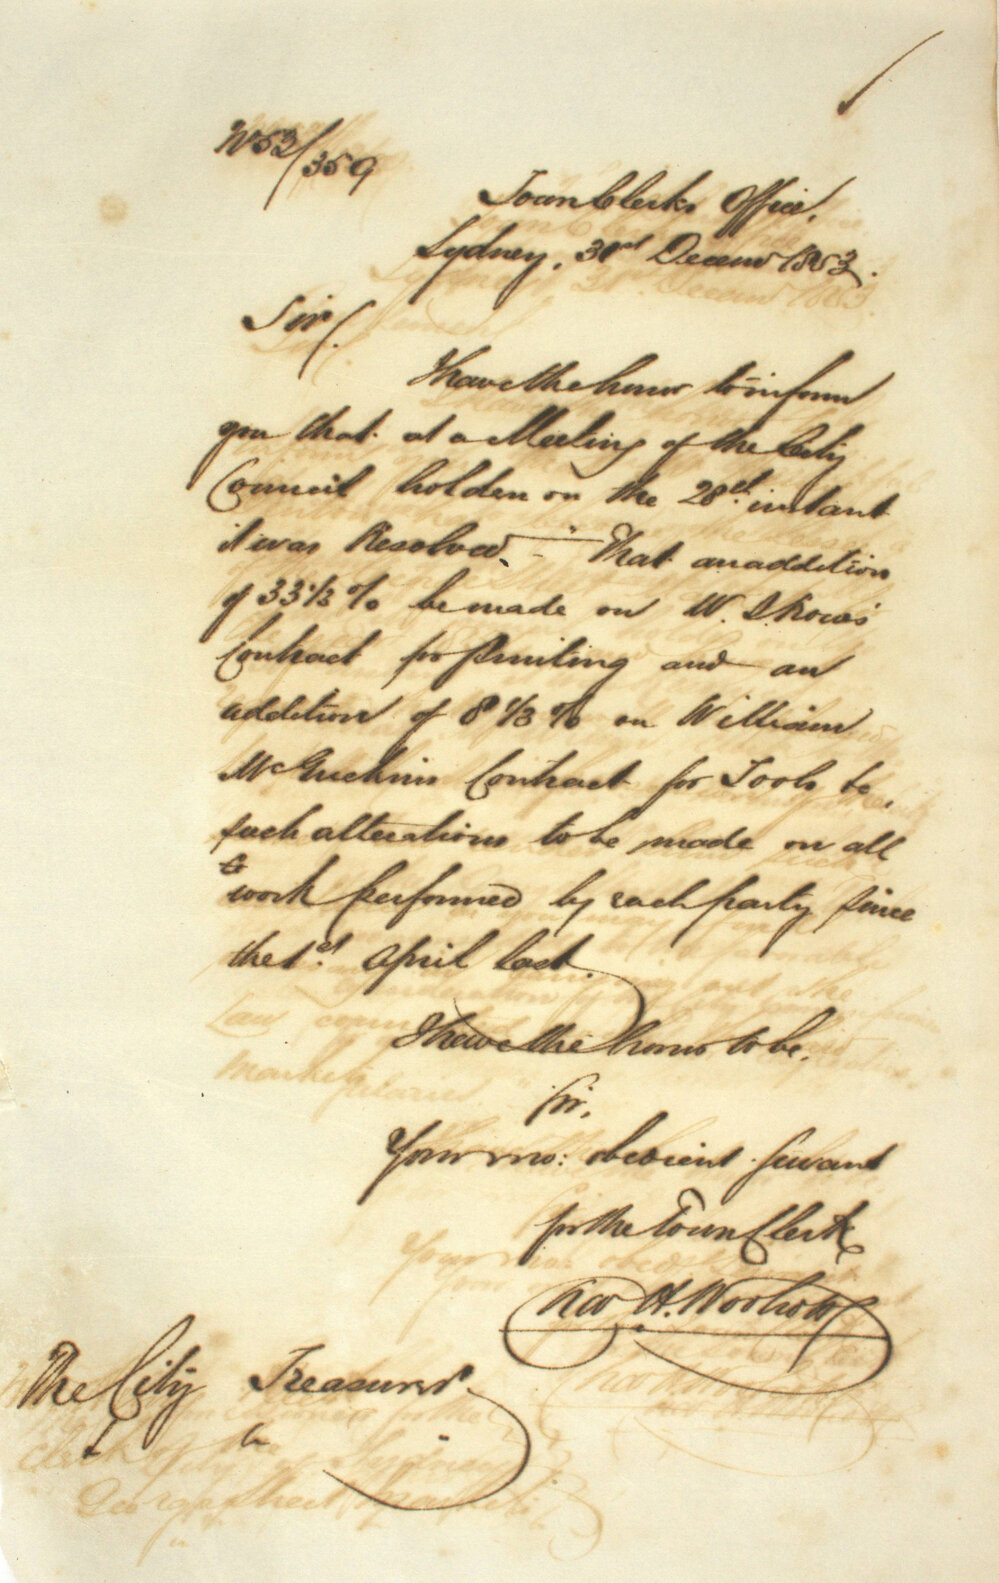 No 53/359
Town Clerks Office,
Sydney, 31st Decemr 1853.
Sir,
I have the honor to inform
you that at a Meeting of the City
Council holden on the 28th instant
it was Resolved, - "That an addition
of 33 1/3 % be made on W.
Contract for Printing and an
addition of 8 1/3 % on William
McGuckins Contract for Tools &c,
such alterations to be made on all
work performed by each party since
the 1st April last.
I have the honor to be,
Sir,
Your mo: obedient Servant
for the Town Clerk
H. Woolcott
The City Treasurer